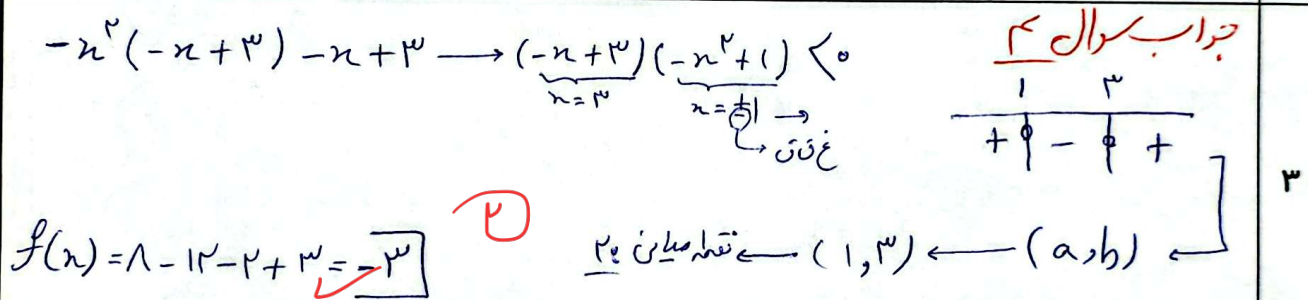 جواب سوال ۴
-x²(-x+۳) -x+۳ → (-x+۳)(-x²+۱) < ۰
x=۳ x=±۱ →
غ ق ق
۱ ۳
+ - +
۳
(a,b) ← (۱,۳) ← نقطه میانی ۲
۲
f(x) = ۸-۱۲-۲+۳ = -۳